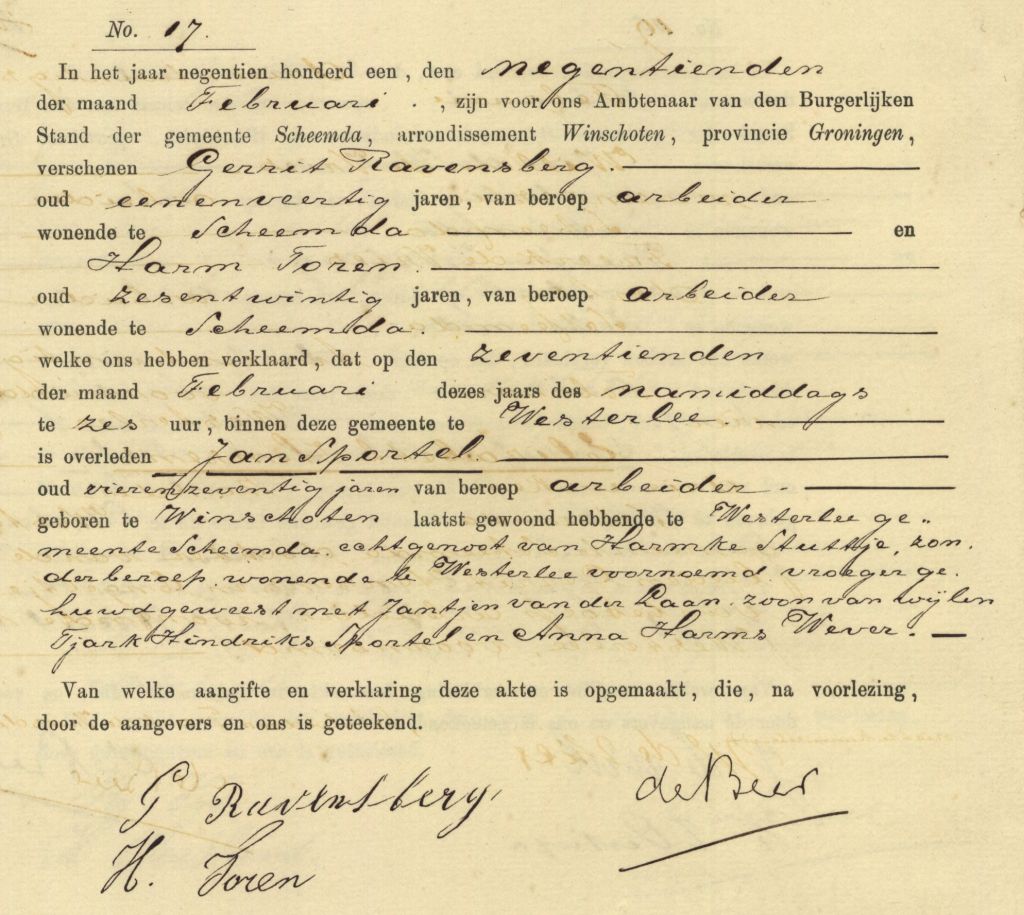 No. 17.
In het jaar negentien honderd een, den negentienden
der maand Februari . , zijn voor ons Ambtenaar van den Burgerlijken
Stand der gemeente Scheemda, arrondissement Winschoten, provincie Groningen,
verschenen Gerrit Ravensberg.
oud eenenveertig jaren, van beroep arbeider
wonende te Scheemda en
Harm Toren.
oud zesentwintig jaren, van beroep arbeider
wonende te Scheemda.
welke ons hebben verklaard, dat op den zeventienden
der maand Februari dezes jaars des namiddags
te zes uur, binnen deze gemeente te Westerlee.
is overleden Jan Sportel.
oud vierenzeventig jaren van beroep arbeider.
geboren te Winschoten laatst gewoond hebbende te Westerlee ge„
meente Scheemda. echtgenoot van Harmke Stuttje, zon.
der beroep, wonende te Westerlee voornoemd, vroeger ge.
huwd geweest met Jantjen van der Laan. zoon van wijlen
Tjark Hindriks Sportel en Anna Harms Wever.
Van welke aangifte en verklaring deze akte is opgemaakt, die, na voorlezing,
door de aangevers en ons is geteekend.
G Ravensberg,
de Beer
H. Toren